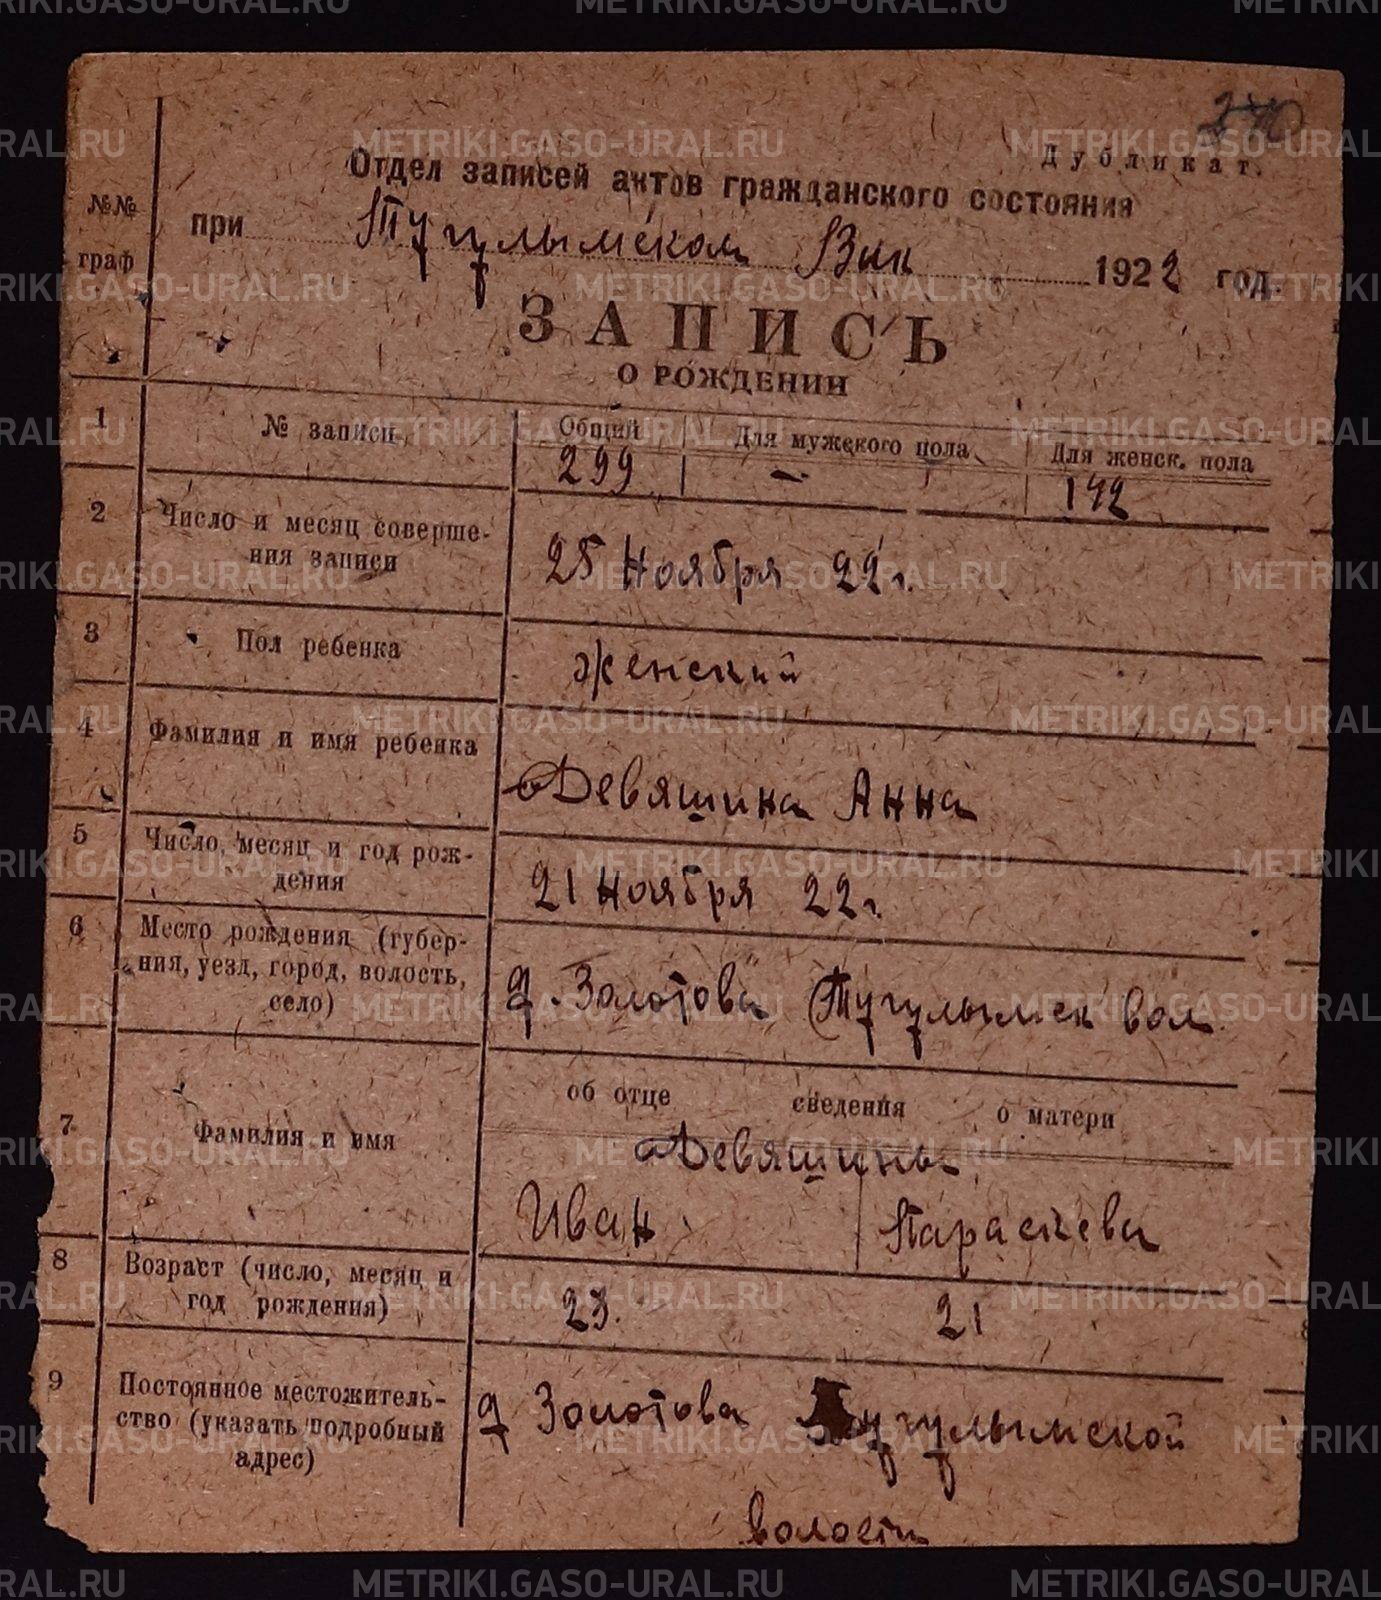 Дубликат.
Отдел записей актов гражданского состояния
при Тугулымском Вик 1922 год.
№№ граф
ЗАПИСЬ
О РОЖДЕНИИ
1 № записи Общий Для мужского пола Для женск. пола
299 — 142
2 Число и месяц соверше-
ния записи 25 Ноября 22 г.
3 Пол ребенка Женский
4 Фамилия и имя ребенка Девяшина Анна
5 Число, месяц и год рож-
дения 21 Ноября 22 г.
6 Место рождения (губер-
ния, уезд, город, волость,
село) д. Золотова Тугулымск вол.
об отце сведения о матери
7 Фамилия и имя Девяшины
Иван Параскева
8 Возраст (число, месяц и
год рождения) 23. 21
9 Постоянное местожитель-
ство (указать подробный
адрес) д Золотова Тугулымской
волости
METRIKI.GASO-URAL.RU